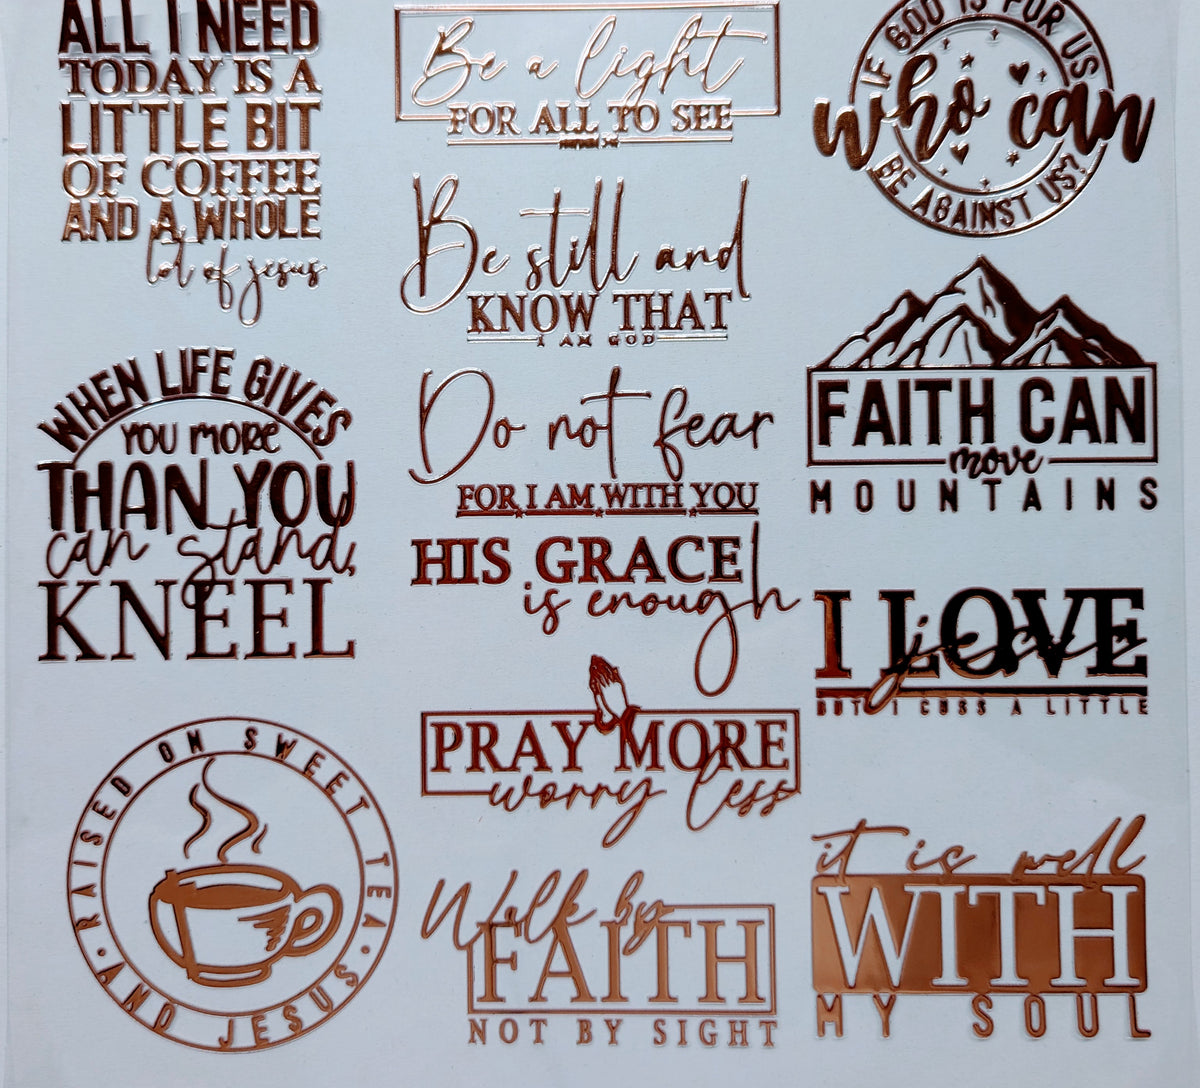 ALL I NEED
TODAY IS A
LITTLE BIT
OF COFFEE
AND A WHOLE
lot of jesus
WHEN LIFE GIVES
YOU MORE
THAN YOU
can stand,
KNEEL
RAISED ON SWEET TEA
• AND JESUS •
Be a light
FOR ALL TO SEE
Be still and
KNOW THAT
I AM GOD
Do not fear
FOR I AM WITH YOU
HIS GRACE
is enough
PRAY MORE
worry less
Walk by
FAITH
NOT BY SIGHT
IF GOD IS FOR US
who can
BE AGAINST US?
FAITH CAN
move
MOUNTAINS
I LOVE
jesus
BUT I CUSS A LITTLE
it is well
WITH
MY SOUL